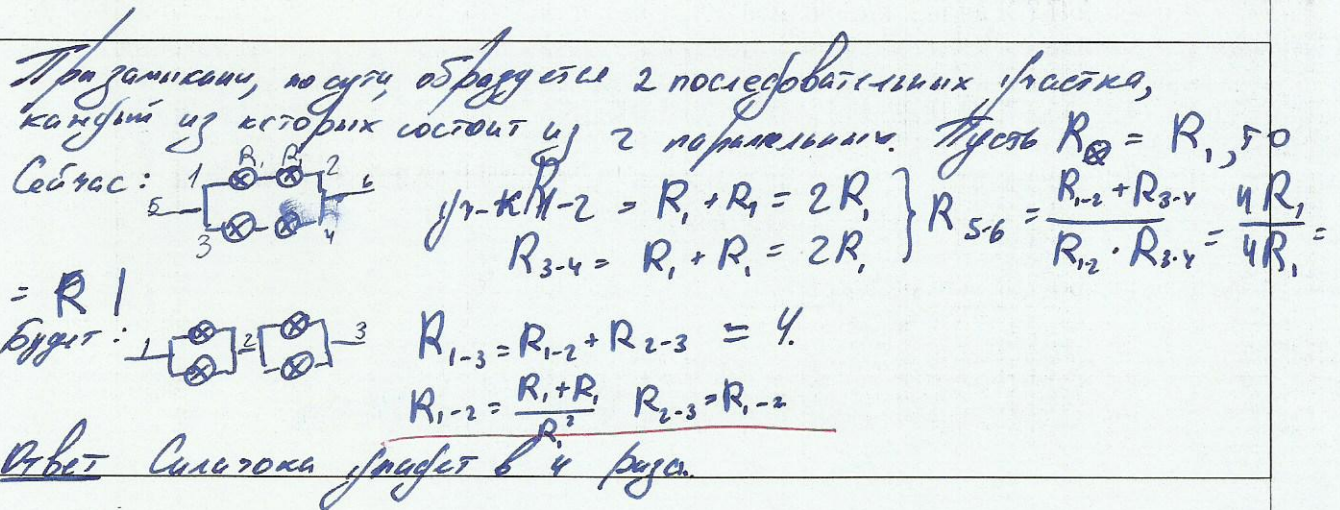 При замыкании, по сути, образуется 2 последовательных участка,
каждый из которых состоит из 2 паралельных. Пусть R⊗ = R₁, то
Сейчас: 1 R₁ R₁ 2 5 6 3 4
R₁₋₂ = R₁ + R₁ = 2R₁
R₃₋₄ = R₁ + R₁ = 2R₁
} R₅₋₆ = (R₁₋₂ + R₃₋₄)/(R₁₋₂ · R₃₋₄) = 4R₁/4R₁ =
= R 1
Будет: 1 2 3 R₁₋₃ = R₁₋₂ + R₂₋₃ = 4.
R₁₋₂ = (R₁ + R₁)/R₁² R₂₋₃ = R₁₋₂
Ответ Сила тока упадет в 4 раза.